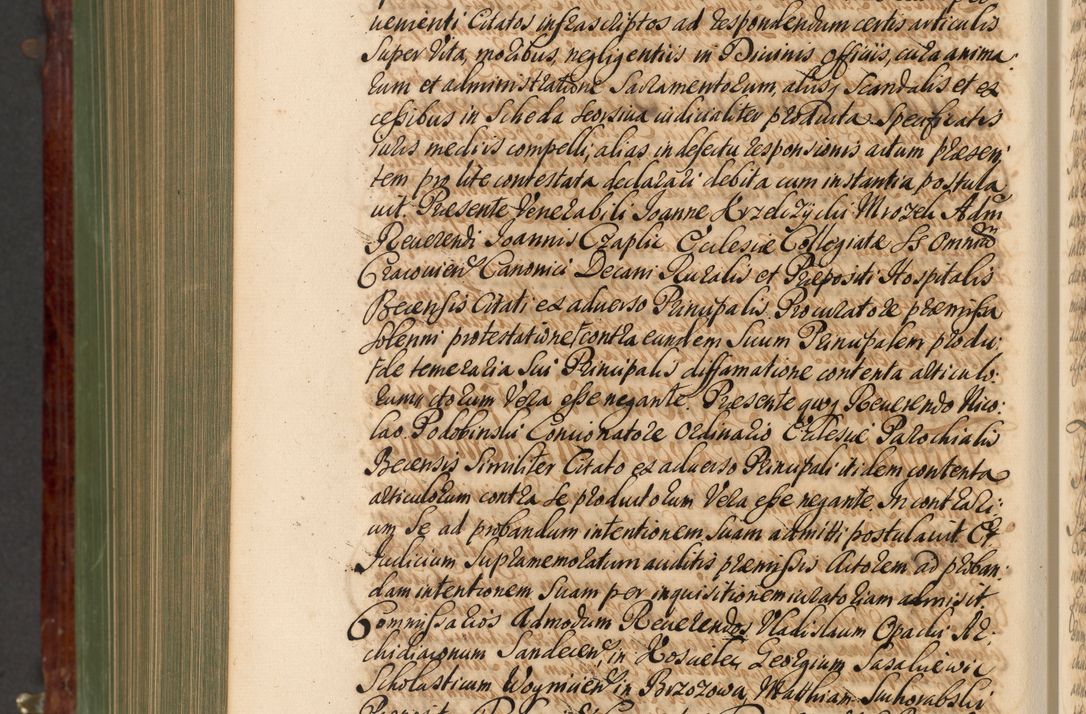 uenienti Citatos infrascriptos ad respondendum certis articulis
super Vita, moribus, negligentiis in Diuinis Officiis, cura anima
rum et administratione Sacramentorum, aliisq Scandalis et ex
cessibus in Scheda seorsiua iudicialiter producta Specificatis
iuris mediis compelli, alias in defectu responsionis actum præsen;
tem pro lite contestata declarari debita cum instantia postula
uit. Præsente Venerabili Joanne Krzelczycki Mrozek Adm
Reuerendi Joannis Czaplic Ecclesiæ Collegiatæ SS Omnium
Cracouien Canonici Decani Ruralis et Præpositi Hospitalis
Becensis Citati ex aduerso Principalis Procuratore præmissa
solenni protestatione contra eundem suum Principalem produ:
de temeraria sui Principalis diffamatione contenta articulo:
rum ctorum Vera esse negante. Præsente quoq Reuerendo Nico:
lao Podobinski Concionatore Ordinario Ecclesiæ Parochialis
Becensis Similiter Citato ex aduerso Principali itidem contenta
articulorum contra se productorum Vera esse negante. In contrari:
um se ad probandum intentionem suam admitti postulauit. Et
Judicium supramemoratum auditis præmissis Actorem ad proban
dam intentionem suam per inquisitionem iuratoriam admisit
Commissarios Admodum Reuerendos Vladislaum Opacki Ar:
chidiaconum Sandecen, in Georgium Sasalu
Scholasticum Woynicien in Brzozowa, Mathiam Suchorabski